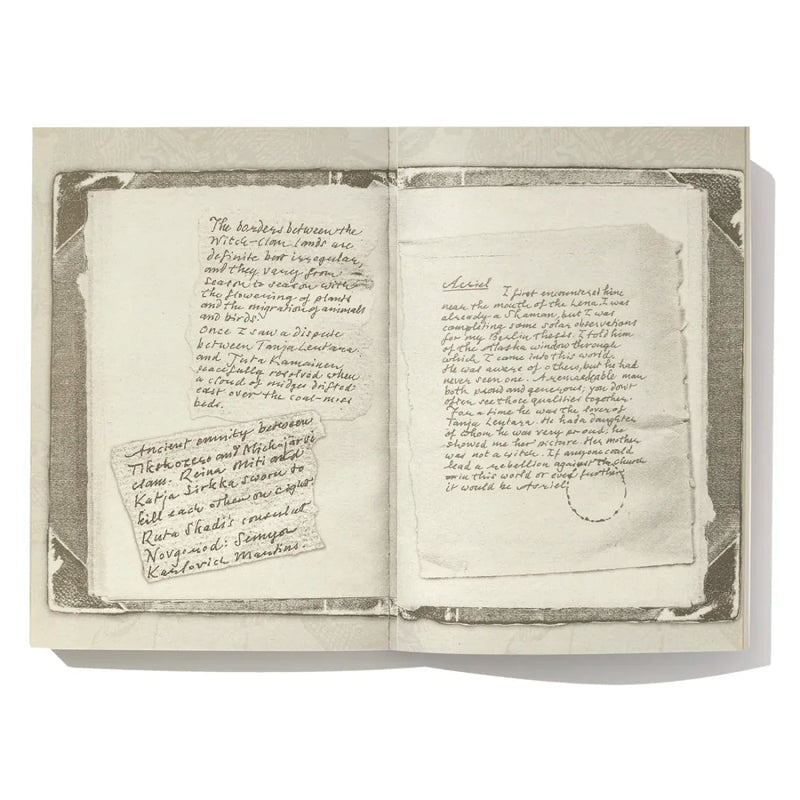 The borders between the
Witch-clan lands are
definite but irregular,
and they vary from
season to season with
the flowering of plants
and the migration of animals
and birds.
Once I saw a dispute
between Tanja Lentara
and Juta Kamainen
peacefully resolved when
a cloud of midges drifted
east over the coal-moss
beds.
Ancient enmity between
Tikshozero and Miekojärvi
clans. Reina Miti and
Katja Sirkka sworn to
kill each other on sight
Ruta Skadi's consulate
Novgorod: Semyon
Karlovich Martins.
Asriel I first encountered him
near the mouth of the Lena. I was
already a Shaman, but I was
completing some solar observations
for my Berlin thesis. I told him
of the Alaska window through
which I came into this world.
He was aware of others, but he had
never seen one. A remarkable man
both proud and generous; you don't
often see those qualities together.
For a time he was the lover of
Tanja Lentara. He had a daughter
of whom he was very proud; he
showed me her picture. Her mother
was not a witch. If anyone could
lead a rebellion against the church
in this world or even further
it would be Asriel.